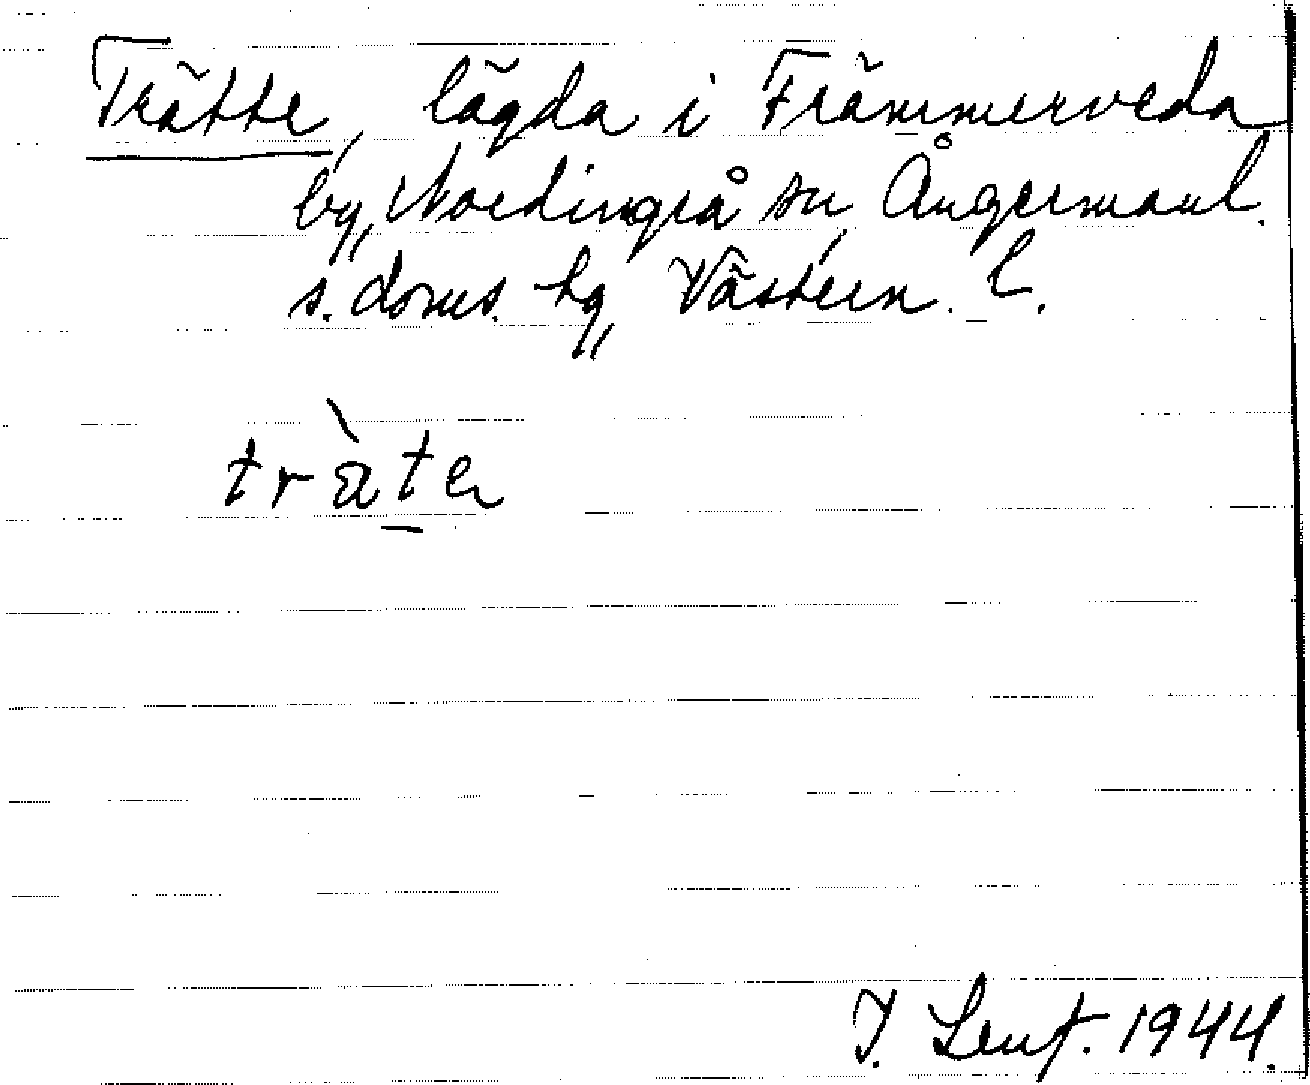 Trätte, lägda i Främmerveda
by, Nordingrå sn, Ångermanl.
s. doms. hg, Västern. l.
tràte
J. 1944.